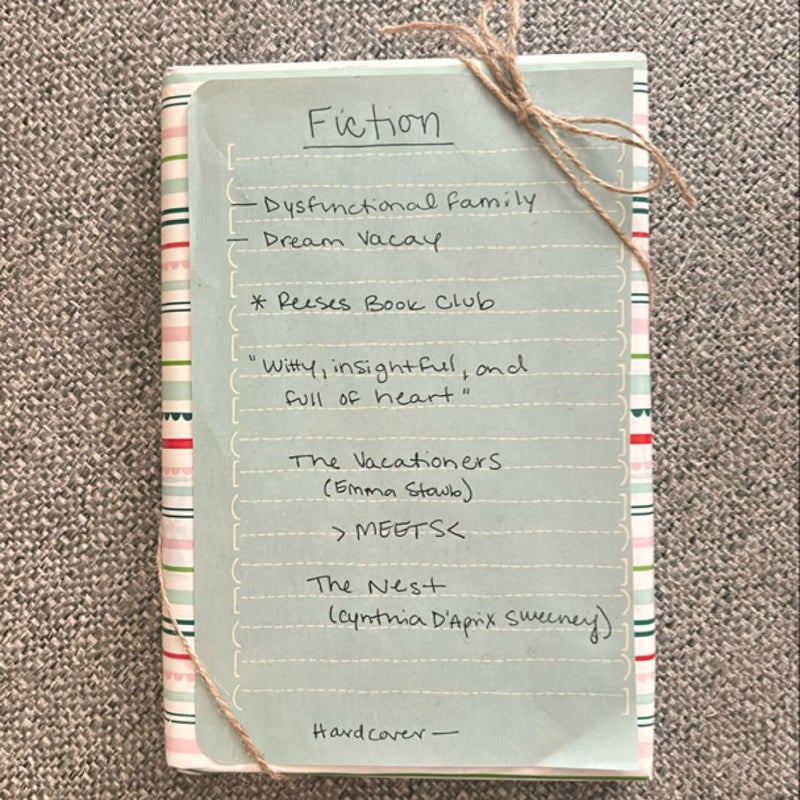 Fiction
— Dysfunctional Family
— Dream Vacay
* Reeses Book Club
"Witty, insightful, and
full of heart"
The Vacationers
(Emma Staub)
> MEETS <
The Nest
(Cynthia D'Aprix Sweeney)
Hardcover —